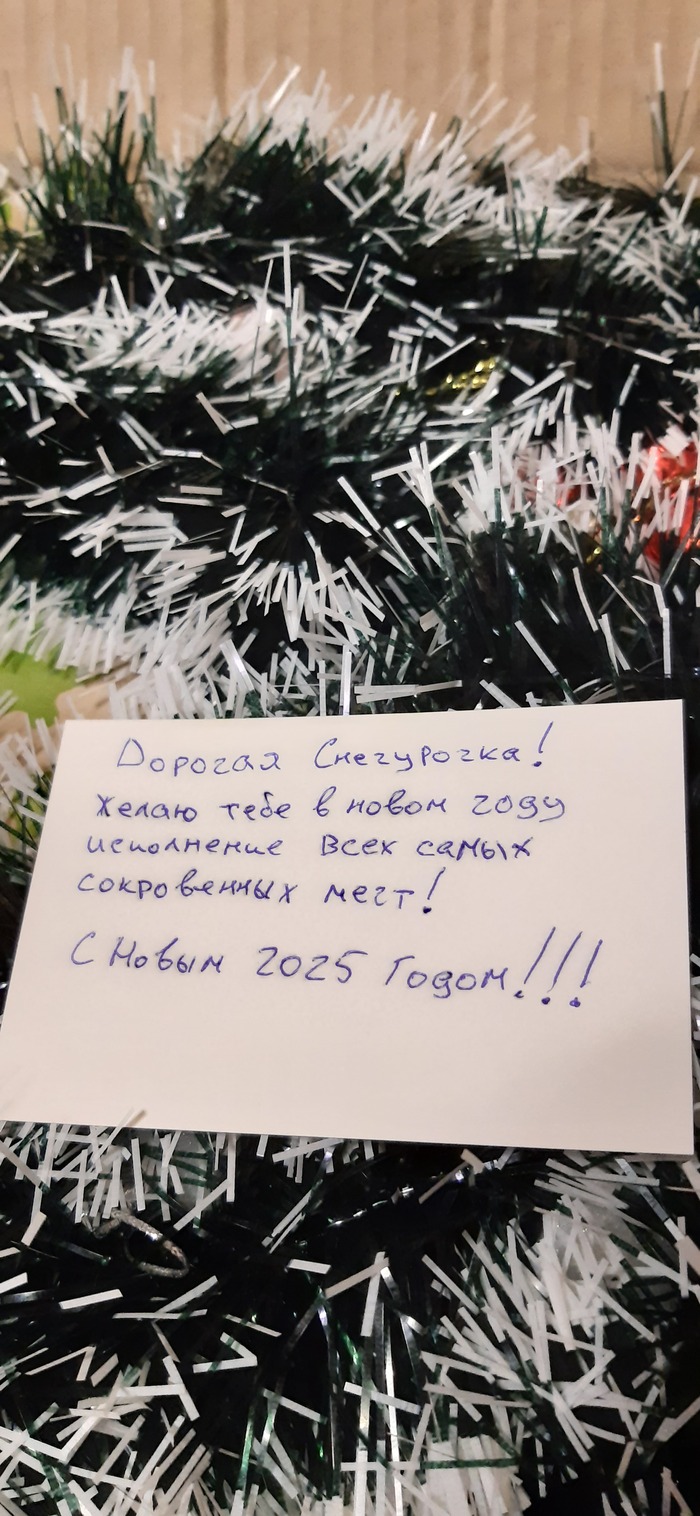 Дорогая Снегурочка!
Желаю тебе в новом году
исполнение всех самых
сокровенных мечт!
С Новым 2025 Годом!!!